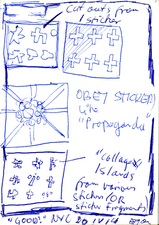 CUT OUTS FROM
1 STICKER
OBEY STICKER
LIKE
"Propaganda"
"collages"
Islands
from various
stickers OR
sticker fragments
"GOOD!" NYC 20 IV 14